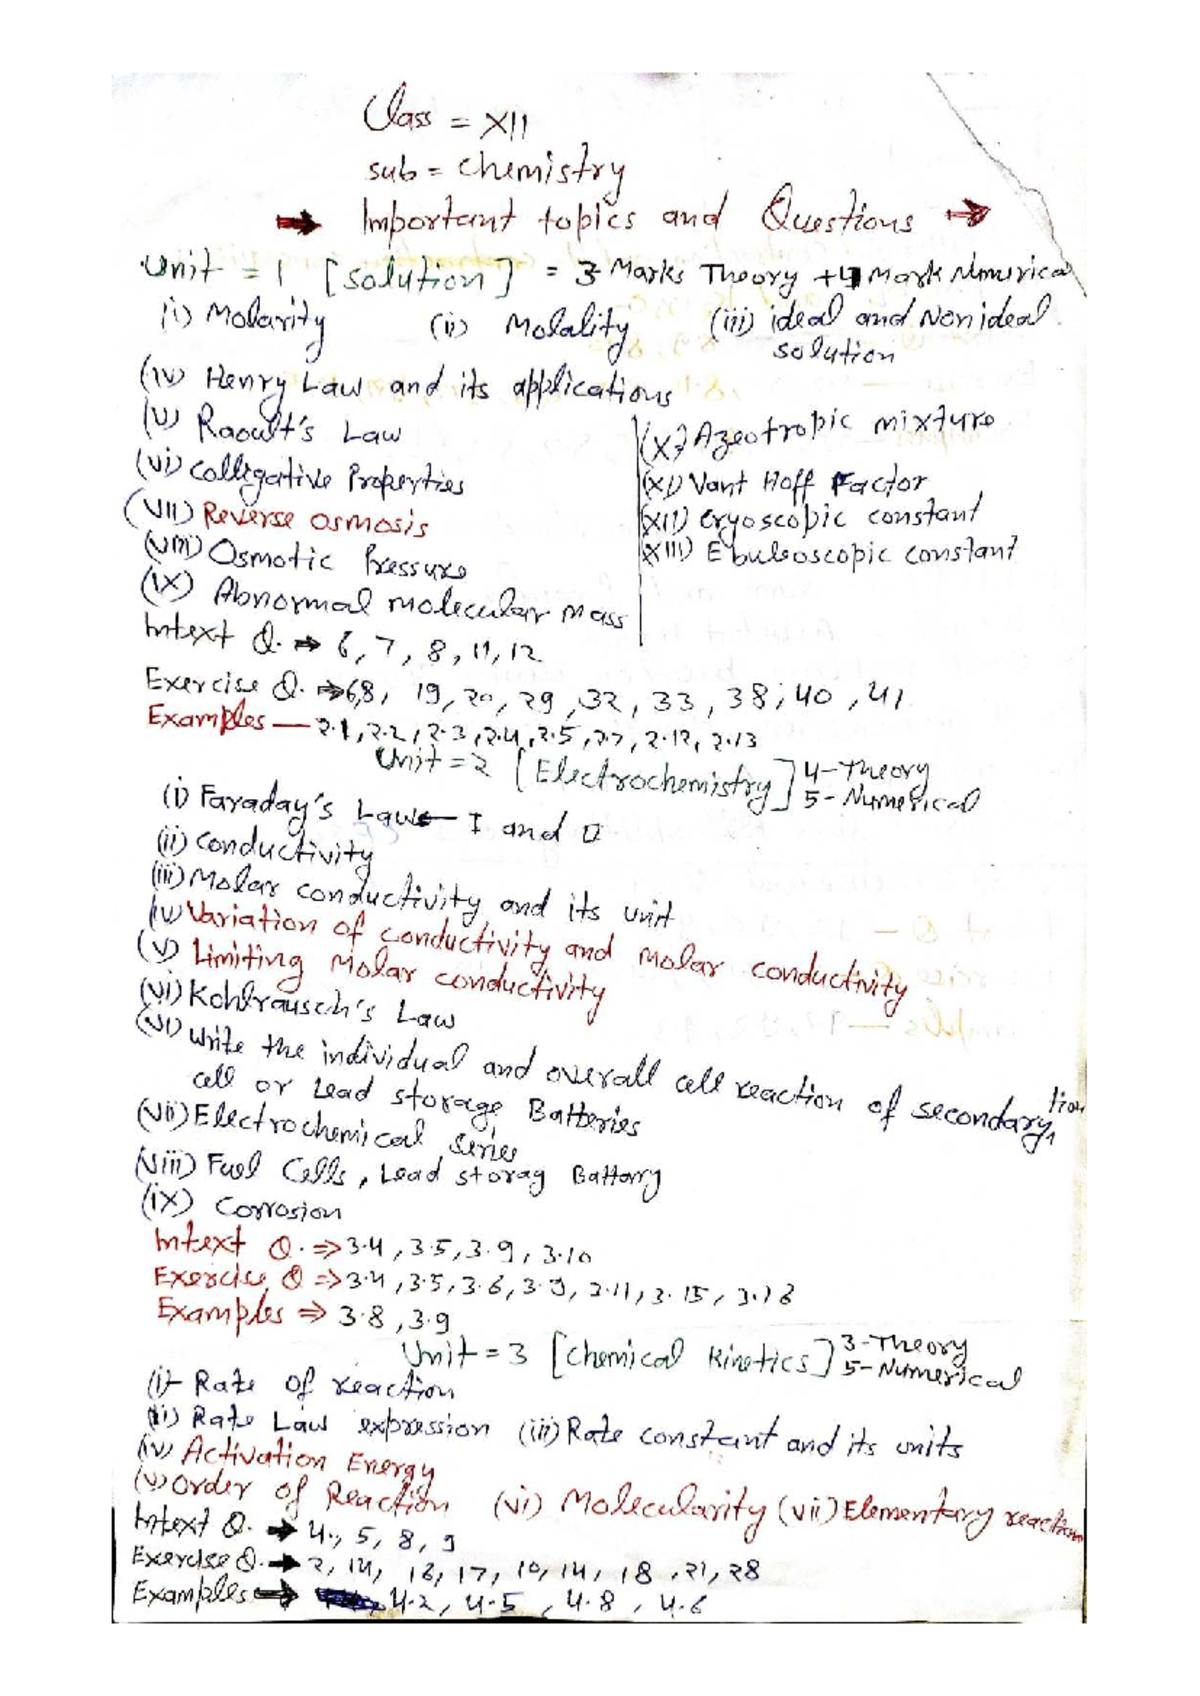 Class = XII
sub = Chemistry
→ Important topics and Questions →
Unit = 1 [Solution] = 3 Marks Theory + 4 Mark Numerical
(i) Molarity (ii) Molality (iii) ideal and Non ideal
solution
(iv) Henry Law and its applications
(v) Raoult's Law
(vi) Colligative Properties
(VII) Reverse osmosis
(VIII) Osmotic Pressure
(IX) Abnormal molecular mass
(X) Azeotropic mixture
(XI) Vant Hoff Factor
(XII) Cryoscopic constant
(XIII) Ebuleoscopic constant
Intext Q. → 6, 7, 8, 11, 12
Exercise Q. ⇒ 6,8, 19, 20, 29, 32, 33, 38, 40, 41
Examples — 2.1, 2.2, 2.3, 2.4, 2.5, 2.7, 2.12, 2.13
Unit = 2 [Electrochemistry] 4-Theory
5-Numerical
(i) Faraday's Law ← I and II
(ii) Conductivity
(iii) Molar conductivity and its unit
(iv) Variation of conductivity and molar conductivity
(v) Limiting Molar conductivity
(vi) Kohlrausch's Law
(vi) Write the individual and overall cell reaction of secondary
cell or Lead storage Batteries
(vii) Electrochemical series
(viii) Fuel Cells, Lead storag Battary
(ix) Corrosion
Intext Q. ⇒ 3.4, 3.5, 3.9, 3.10
Exercise Q ⇒ 3.4, 3.5, 3.6, 3.9, 3.11, 3.15, 3.16
Examples ⇒ 3.8, 3.9
Unit = 3 [Chemical Kinetics] 3-Theory
5-Numerical
(i) Rate of reaction
(ii) Rate Law expression (iii) Rate constant and its units
(iv) Activation Energy
(v) Order of Reaction (vi) Molecularity (vii) Elementary reaction
Intext Q. → 4, 5, 8, 9
Exercise Q. → 2, 14, 16, 17, 10, 14, 18, 21, 28
Examples → 4.2, 4.5, 4.8, 4.6